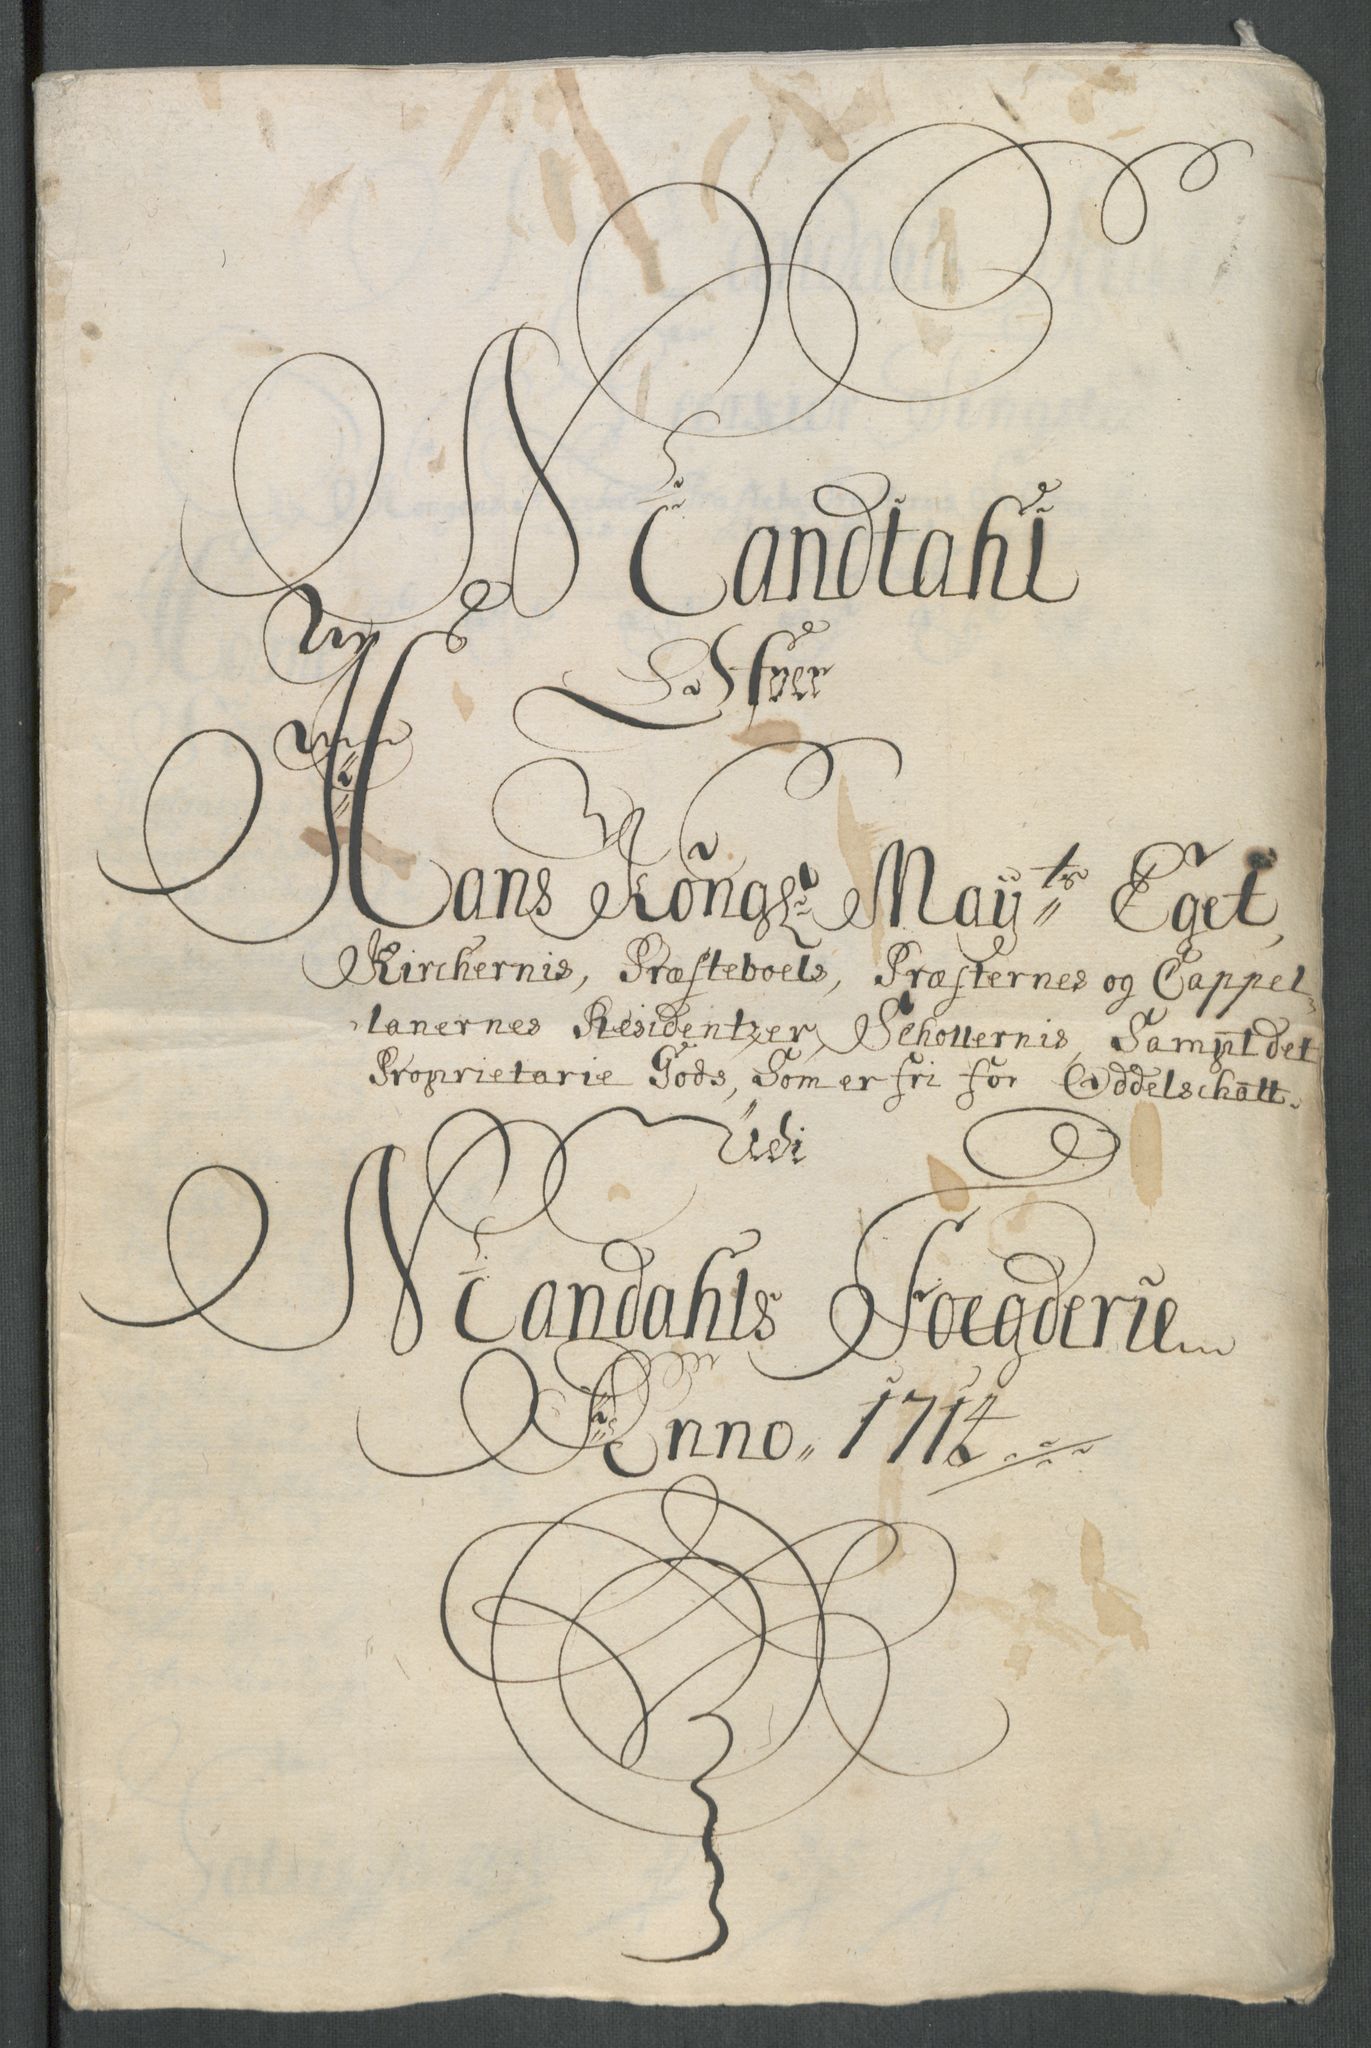 Mandtahl
Ofver
Hans Kongl: May:ts Eget,
Kirchernis, Præsteboels, Præsternes og Cappel-
lanernes Residentzer, Scholernis, Sampt det
Proprietarie Gods, Som er fri for Oddelschatt.
Udi
Mandahls Foegderie
Anno. 1714